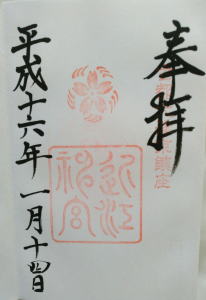 奉拝
近江
神宮
平成十六年一月十四日